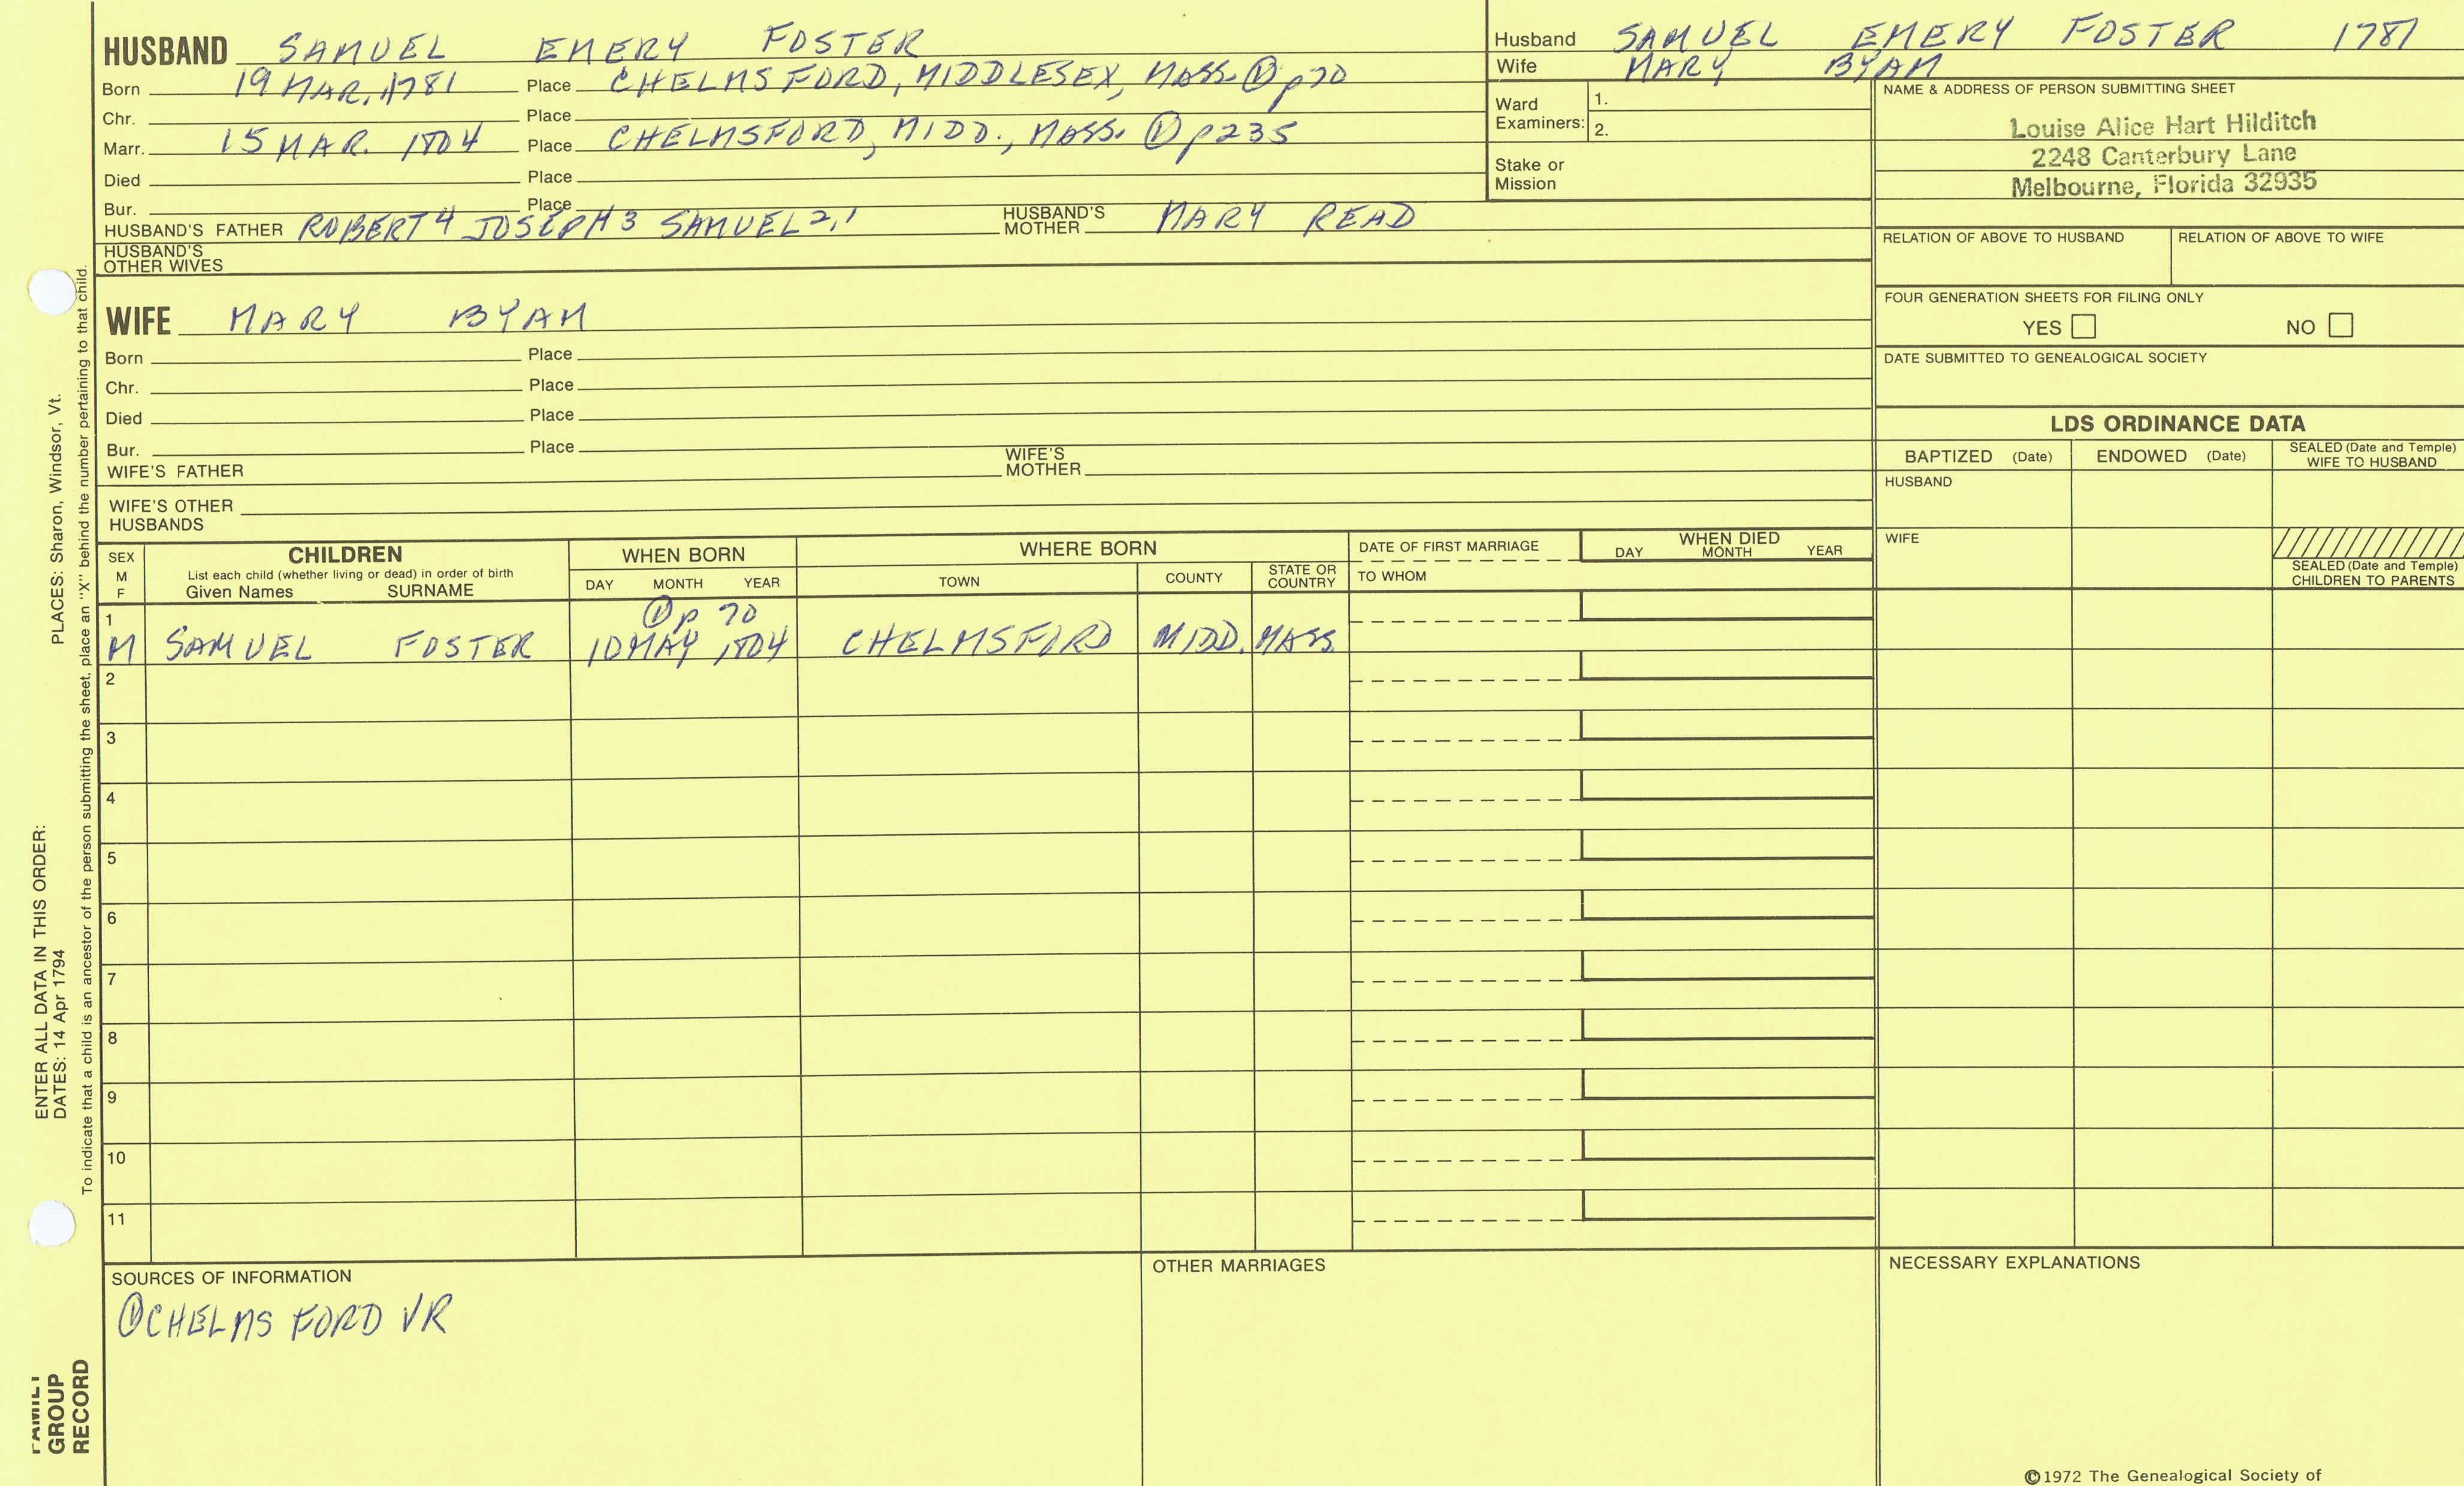 HUSBAND SAMUEL EMERY FOSTER
Born 19 MAR. 1781 Place CHELMSFORD, MIDDLESEX, MASS. ① p70
Chr. Place
Marr. 15 MAR. 1804 Place CHELMSFORD, MIDD., MASS. ① p235
Died Place
Bur. Place
HUSBAND'S FATHER ROBERT4 JOSEPH3 SAMUEL2,1 HUSBAND'S MOTHER MARY READ
HUSBAND'S OTHER WIVES
Husband SAMUEL EMERY FOSTER 1781
Wife MARY BYAM
Ward Examiners: 1.
2.
Stake or Mission
NAME & ADDRESS OF PERSON SUBMITTING SHEET
Louise Alice Hart Hilditch
2248 Canterbury Lane
Melbourne, Florida 32935
RELATION OF ABOVE TO HUSBAND RELATION OF ABOVE TO WIFE
FOUR GENERATION SHEETS FOR FILING ONLY
YES NO
DATE SUBMITTED TO GENEALOGICAL SOCIETY
WIFE MARY BYAM
Born Place
Chr. Place
Died Place
Bur. Place
WIFE'S FATHER WIFE'S MOTHER
WIFE'S OTHER HUSBANDS
LDS ORDINANCE DATA
BAPTIZED (Date) ENDOWED (Date) SEALED (Date and Temple) WIFE TO HUSBAND
HUSBAND
WIFE
SEALED (Date and Temple) CHILDREN TO PARENTS
SEX M F
CHILDREN
List each child (whether living or dead) in order of birth
Given Names SURNAME
WHEN BORN
DAY MONTH YEAR
WHERE BORN
TOWN COUNTY STATE OR COUNTRY
DATE OF FIRST MARRIAGE
TO WHOM
WHEN DIED
DAY MONTH YEAR
1 ① p 70
M SAMUEL FOSTER 10 MAY 1804 CHELMSFORD MIDD. MASS.
2
3
4
5
6
7
8
9
10
11
SOURCES OF INFORMATION
① CHELMSFORD VR
OTHER MARRIAGES
NECESSARY EXPLANATIONS
©1972 The Genealogical Society of
ENTER ALL DATA IN THIS ORDER:
DATES: 14 Apr 1794 PLACES: Sharon, Windsor, Vt.
To indicate that a child is an ancestor of the person submitting the sheet, place an "X" behind the number pertaining to that child.
FAMILY
GROUP
RECORD